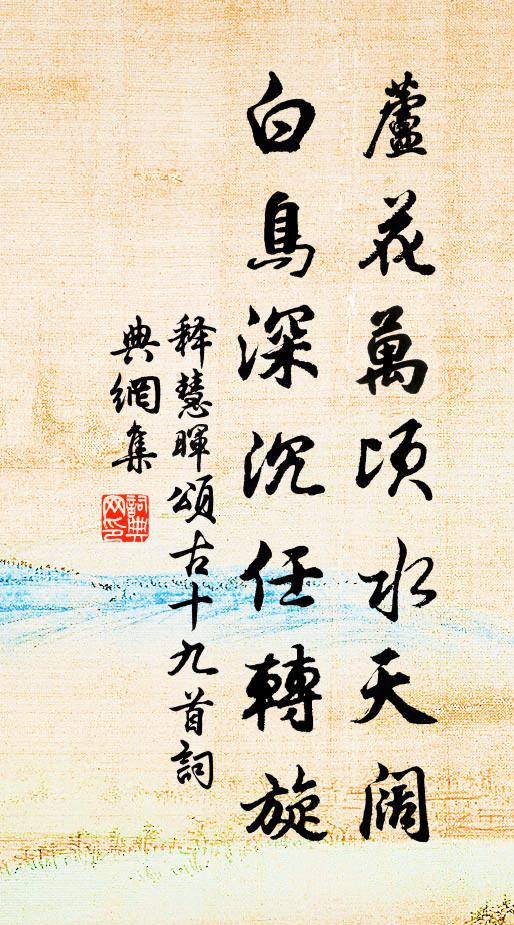 蘆花萬頃水天阔
白鳥深沉任轉旋
釋慧暉頌古十九首詞
典網集
詞典网印